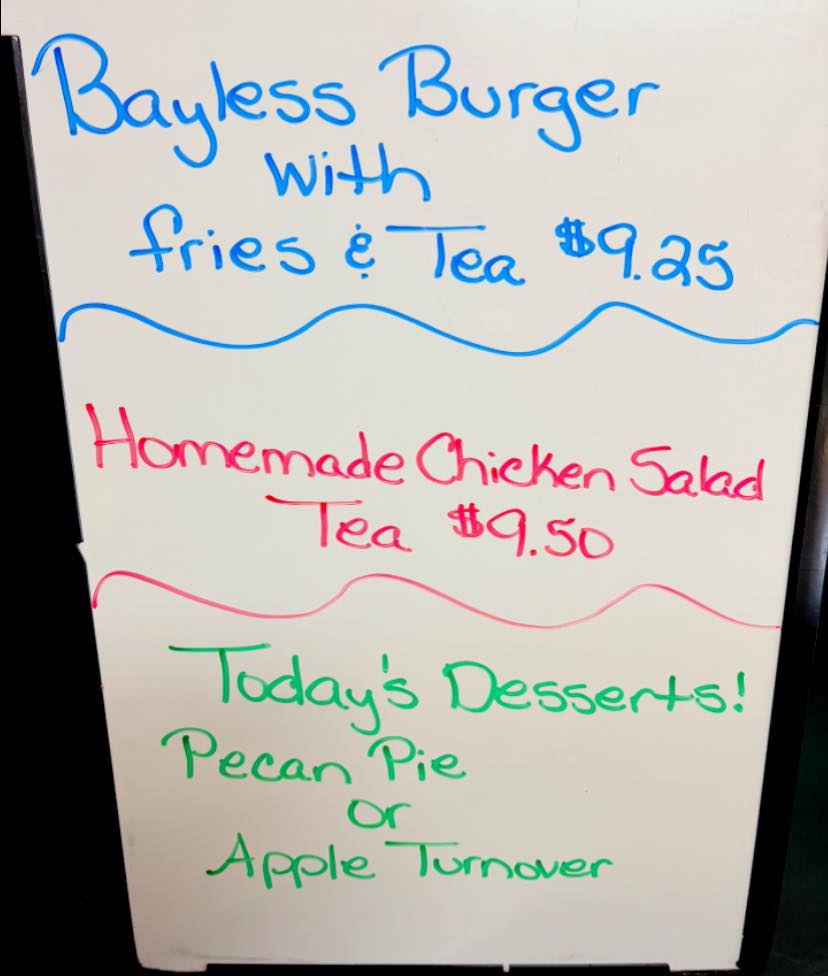 Bayless Burger
With
fries & Tea $9.25
Homemade Chicken Salad
Tea $9.50
Today's Desserts!
Pecan Pie
or
Apple Turnover